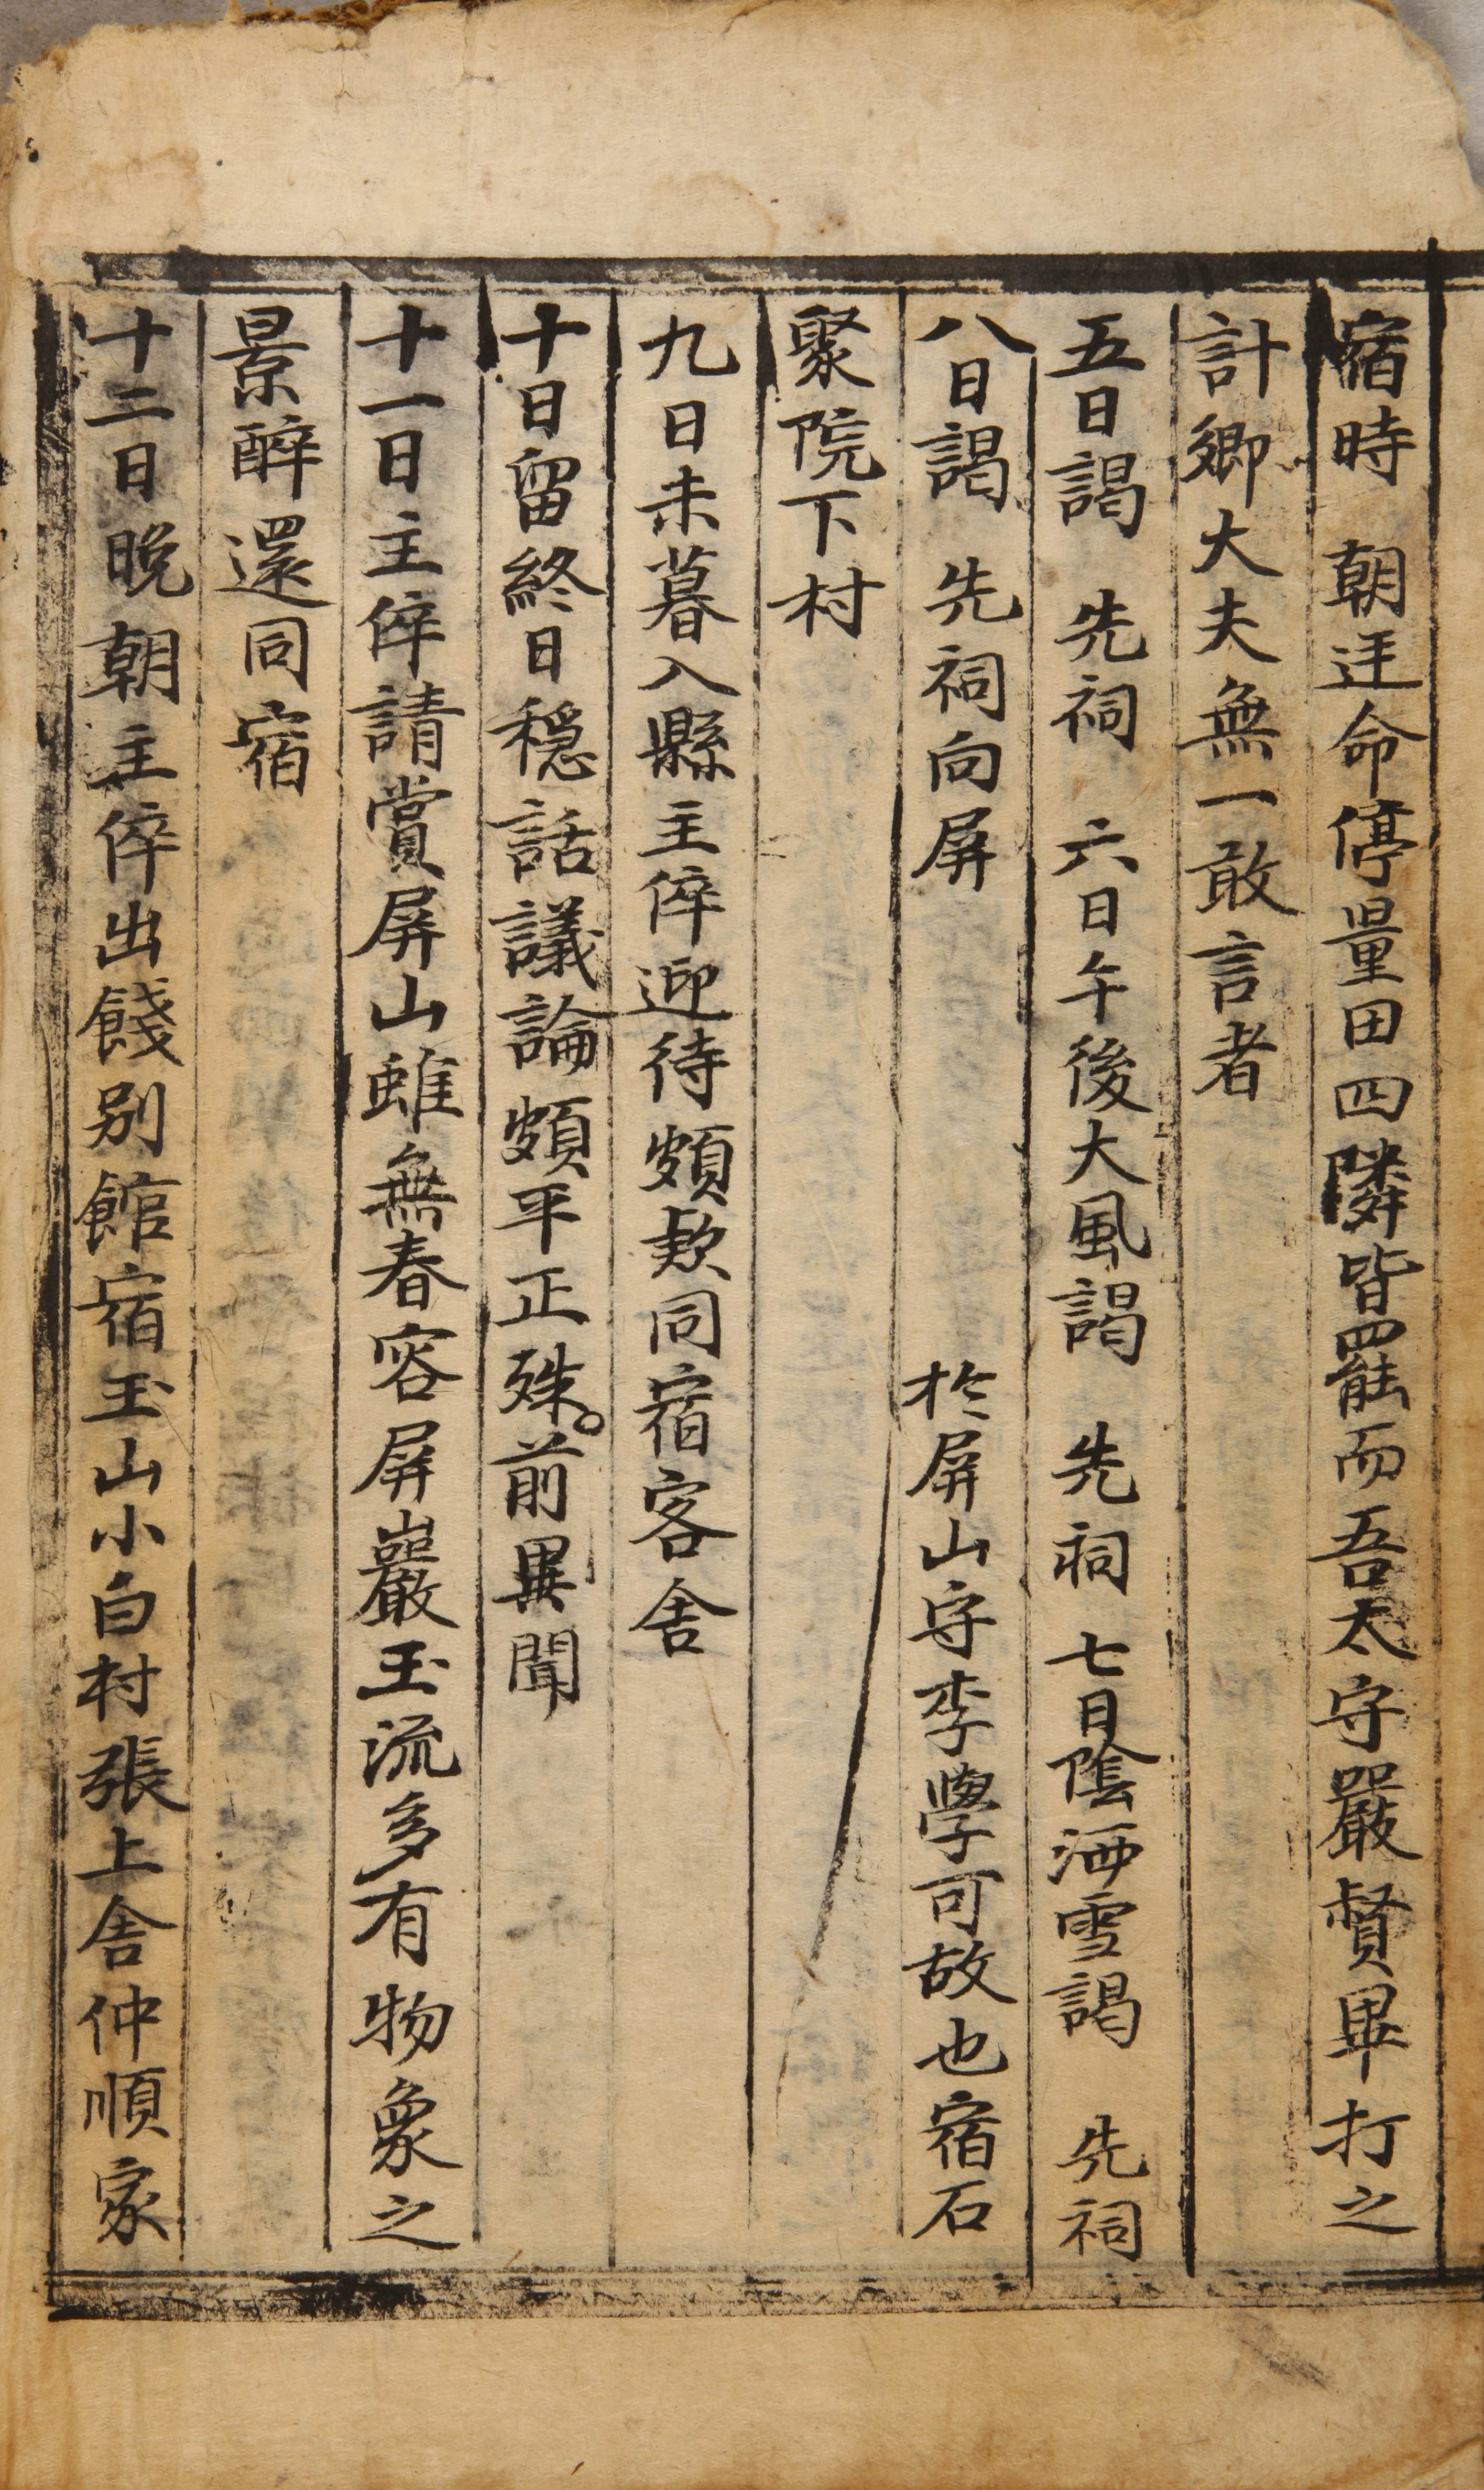 宿時 朝廷命停量田四隣皆罷而吾太守嚴督畢打之
計卿大夫無一敢言者
五日謁 先祠 六日午後大風謁 先祠 七日陰洒雪謁 先祠
八日謁 先祠向屛 於屛山守李學可故也宿石
聚院下村
九日未暮入縣主倅迎待頗款同宿客舍
十日留終日穩話議論頗平正殊前異聞
十一日主倅請賞屛山雖無春容屛巖玉流多有物象之
景醉還同宿
十二日晩朝主倅出餞別館宿玉山小白村張上舍仲順家